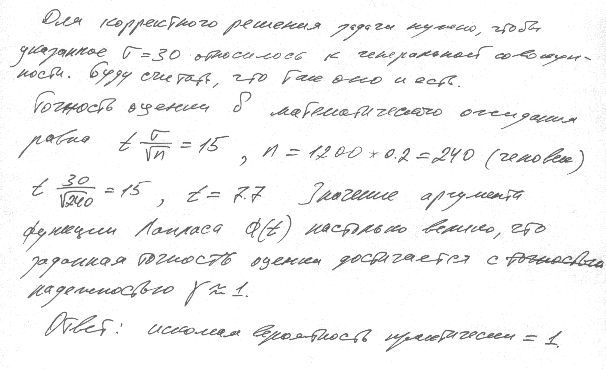 Для корректного решения задачи нужно, чтобы
указанное σ=30 относилось к генеральной совокуп-
ности. Буду считать, что так оно и есть.
Точность оценки δ математического ожидания
равна t σ/√n = 15 , n = 1200 * 0.2 = 240 (человек)
t 30/√240 = 15 , t = 7.7 Значение аргумента
функции Лапласа Φ(t) настолько велико, что
заданная точность оценки достигается с точностью
надежностью γ ≈ 1.
Ответ: искомая вероятность практически = 1.